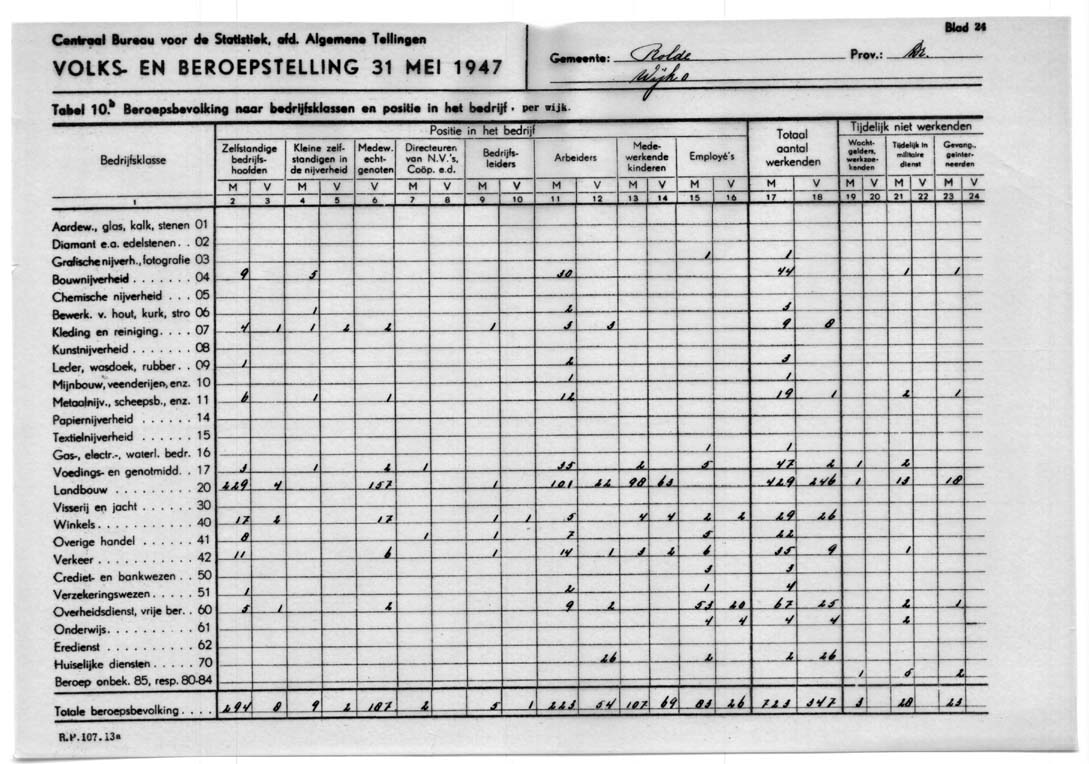 Blad 24
Centraal Bureau voor de Statistiek, afd. Algemene Tellingen
VOLKS- EN BEROEPSTELLING 31 MEI 1947
Gemeente: Rolde Prov.: Dr.
Wijk 0
Tabel 10.b Beroepsbevolking naar bedrijfsklassen en positie in het bedrijf, per wijk.
Bedrijfsklasse
Positie in het bedrijf
Totaal aantal werkenden
Tijdelijk niet werkenden
Zelfstandige bedrijfshoofden
Kleine zelfstandigen in de nijverheid
Medew. echtgenoten
Directeuren van N.V.'s, Coöp. e.d.
Bedrijfsleiders
Arbeiders
Medewerkende kinderen
Employé's
Wachtgelders, werkzoekenden
Tijdelijk in militaire dienst
Gevang., geïnterneerden
M V M V V M V M V M V M V M V M V M V M V M V
1 2 3 4 5 6 7 8 9 10 11 12 13 14 15 16 17 18 19 20 21 22 23 24
Aardew., glas, kalk, stenen 01
Diamant e.a. edelstenen . . 02
Grafische nijverh., fotografie 03 1 1
Bouwnijverheid . . . . . . 04 9 5 30 44 1 1
Chemische nijverheid . . . 05
Bewerk. v. hout, kurk, stro 06 1 2 3
Kleding en reiniging . . . . 07 4 1 1 2 2 1 3 3 9 8
Kunstnijverheid . . . . . . . 08
Leder, wasdoek, rubber . . 09 1 2 3
Mijnbouw, veenderijen, enz. 10 1 1
Metaalnijv., scheepsb., enz. 11 6 1 1 12 19 1 2 1
Papiernijverheid . . . . . . 14
Textielnijverheid . . . . . . 15
Gas-, electr.-, waterl. bedr. 16 1 1
Voedings- en genotmidd. . 17 3 1 2 1 35 2 5 47 2 1 2
Landbouw . . . . . . . . . 20 229 4 157 1 101 22 98 63 429 246 1 13 18
Visserij en jacht . . . . . . 30
Winkels . . . . . . . . . . . 40 17 2 17 1 1 5 4 4 2 2 29 26
Overige handel . . . . . . 41 8 1 1 7 5 22
Verkeer . . . . . . . . . . . 42 11 6 1 14 1 3 2 6 35 9 1
Crediet- en bankwezen . . 50 3 3
Verzekeringswezen . . . . . 51 1 2 1 4
Overheidsdienst, vrije ber. . 60 5 1 2 9 2 53 20 67 25 2 1
Onderwijs . . . . . . . . . . 61 4 4 4 4 2
Eredienst . . . . . . . . . . 62
Huiselijke diensten . . . . . 70 26 2 2 26
Beroep onbek. 85, resp. 80-84 1 5 2
Totale beroepsbevolking . . . . 294 8 9 2 187 2 5 1 223 54 107 69 83 26 723 347 3 28 23
R.P.107.13a